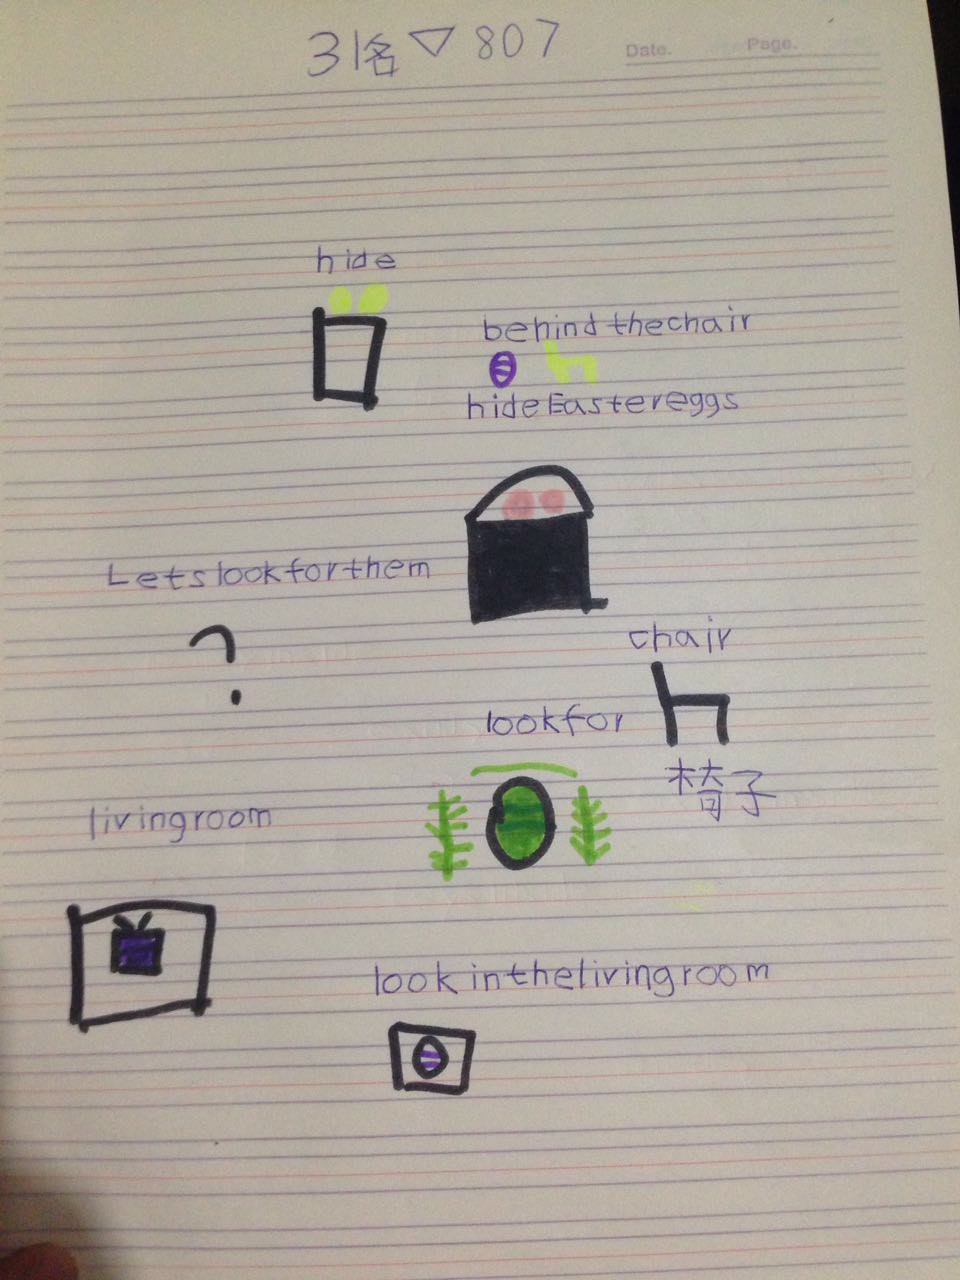 31名▽807
Date.
Page.
hide
behind the chair
hide Easter eggs
Lets look for them
chair
look for
椅子
living room
look in the living room